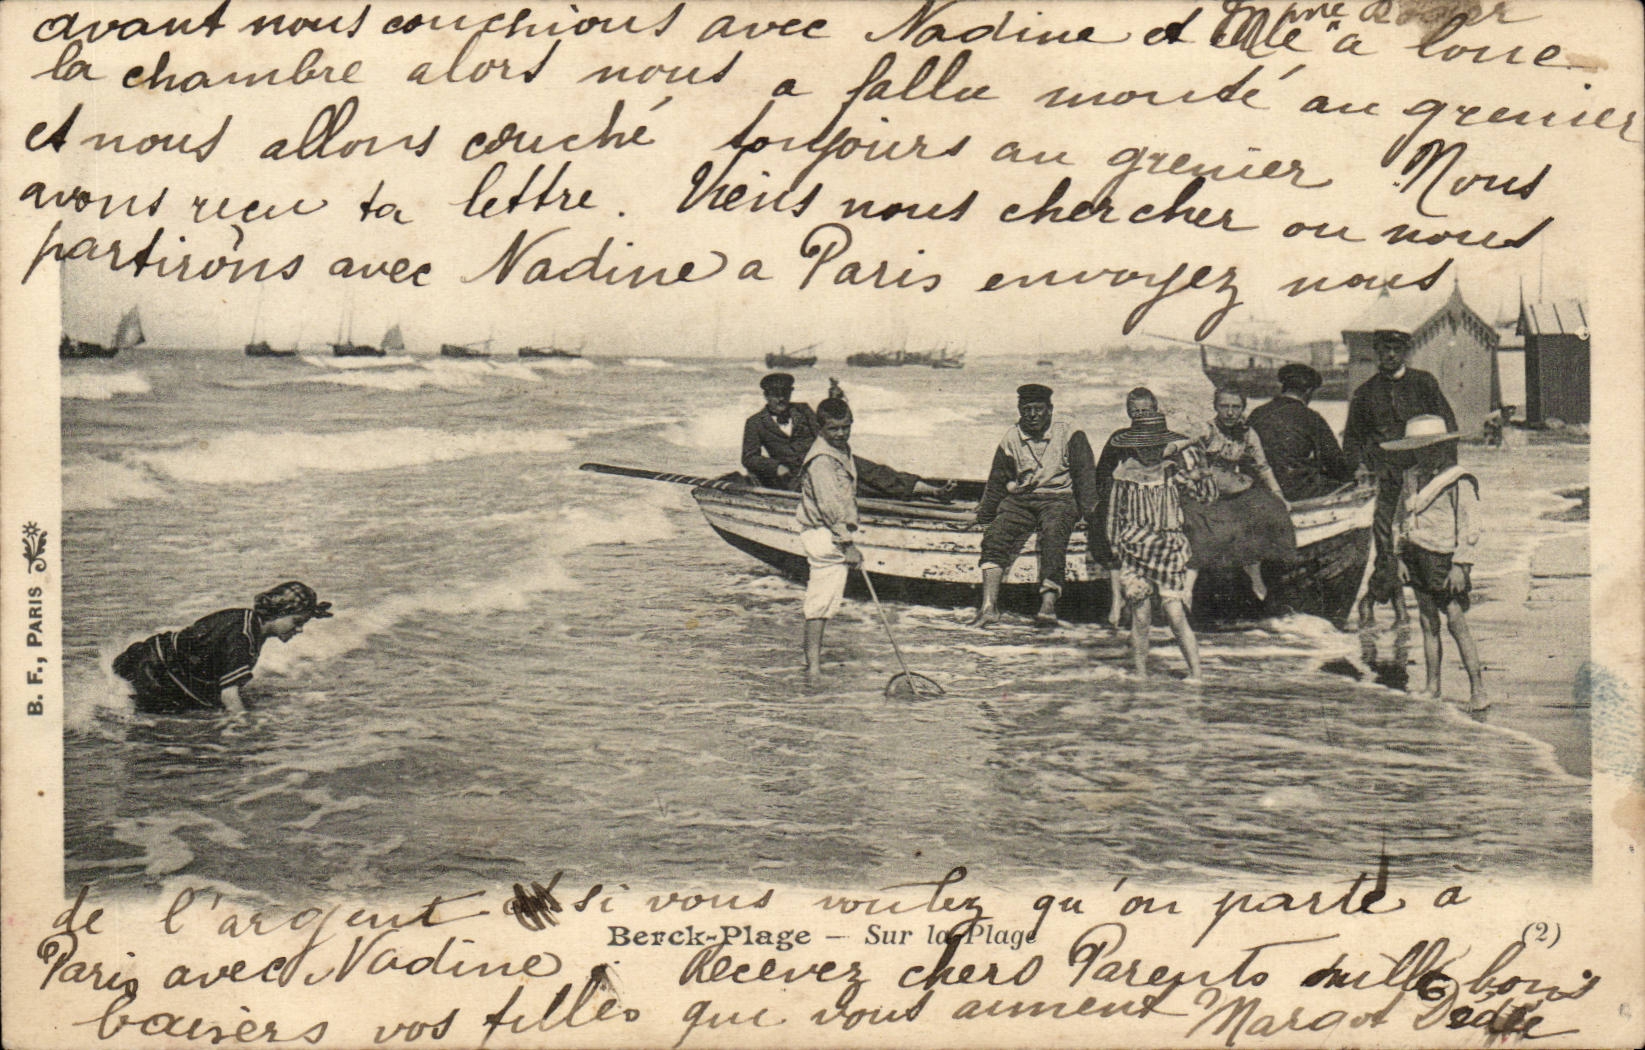 avant nous couchions avec Nadine et Mme à loué
la chambre alors nous a fallu monté au grenier
et nous allons couché toujours au grenier Nous
avons reçu ta lettre. Viens nous chercher ou nous
partirons avec Nadine a Paris envoyez nous
B. F., PARIS
de l'argent si vous voulez qu'on parte a
Berck-Plage — Sur la Plage (2)
Paris avec Nadine. Recevez chers Parents mille bons
baisers vos filles qui vous aiment Margot Dédée